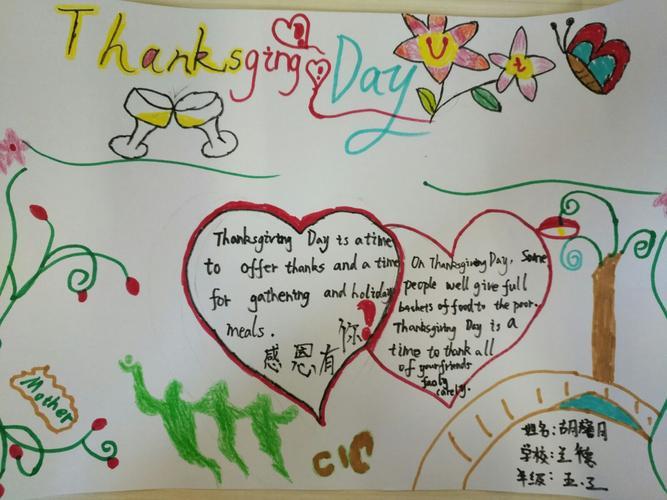 Thanksgiving Day
Thanksgiving Day is a time
to offer thanks and a time
for gathering and holiday
meals.
感恩有你!
On Thanksgiving Day, Some
people well give full
baskets of food to the poor.
Thanksgiving Day is a
time to thank all
of your friends
Mother
姓名:胡 月
学校:
年级:五.